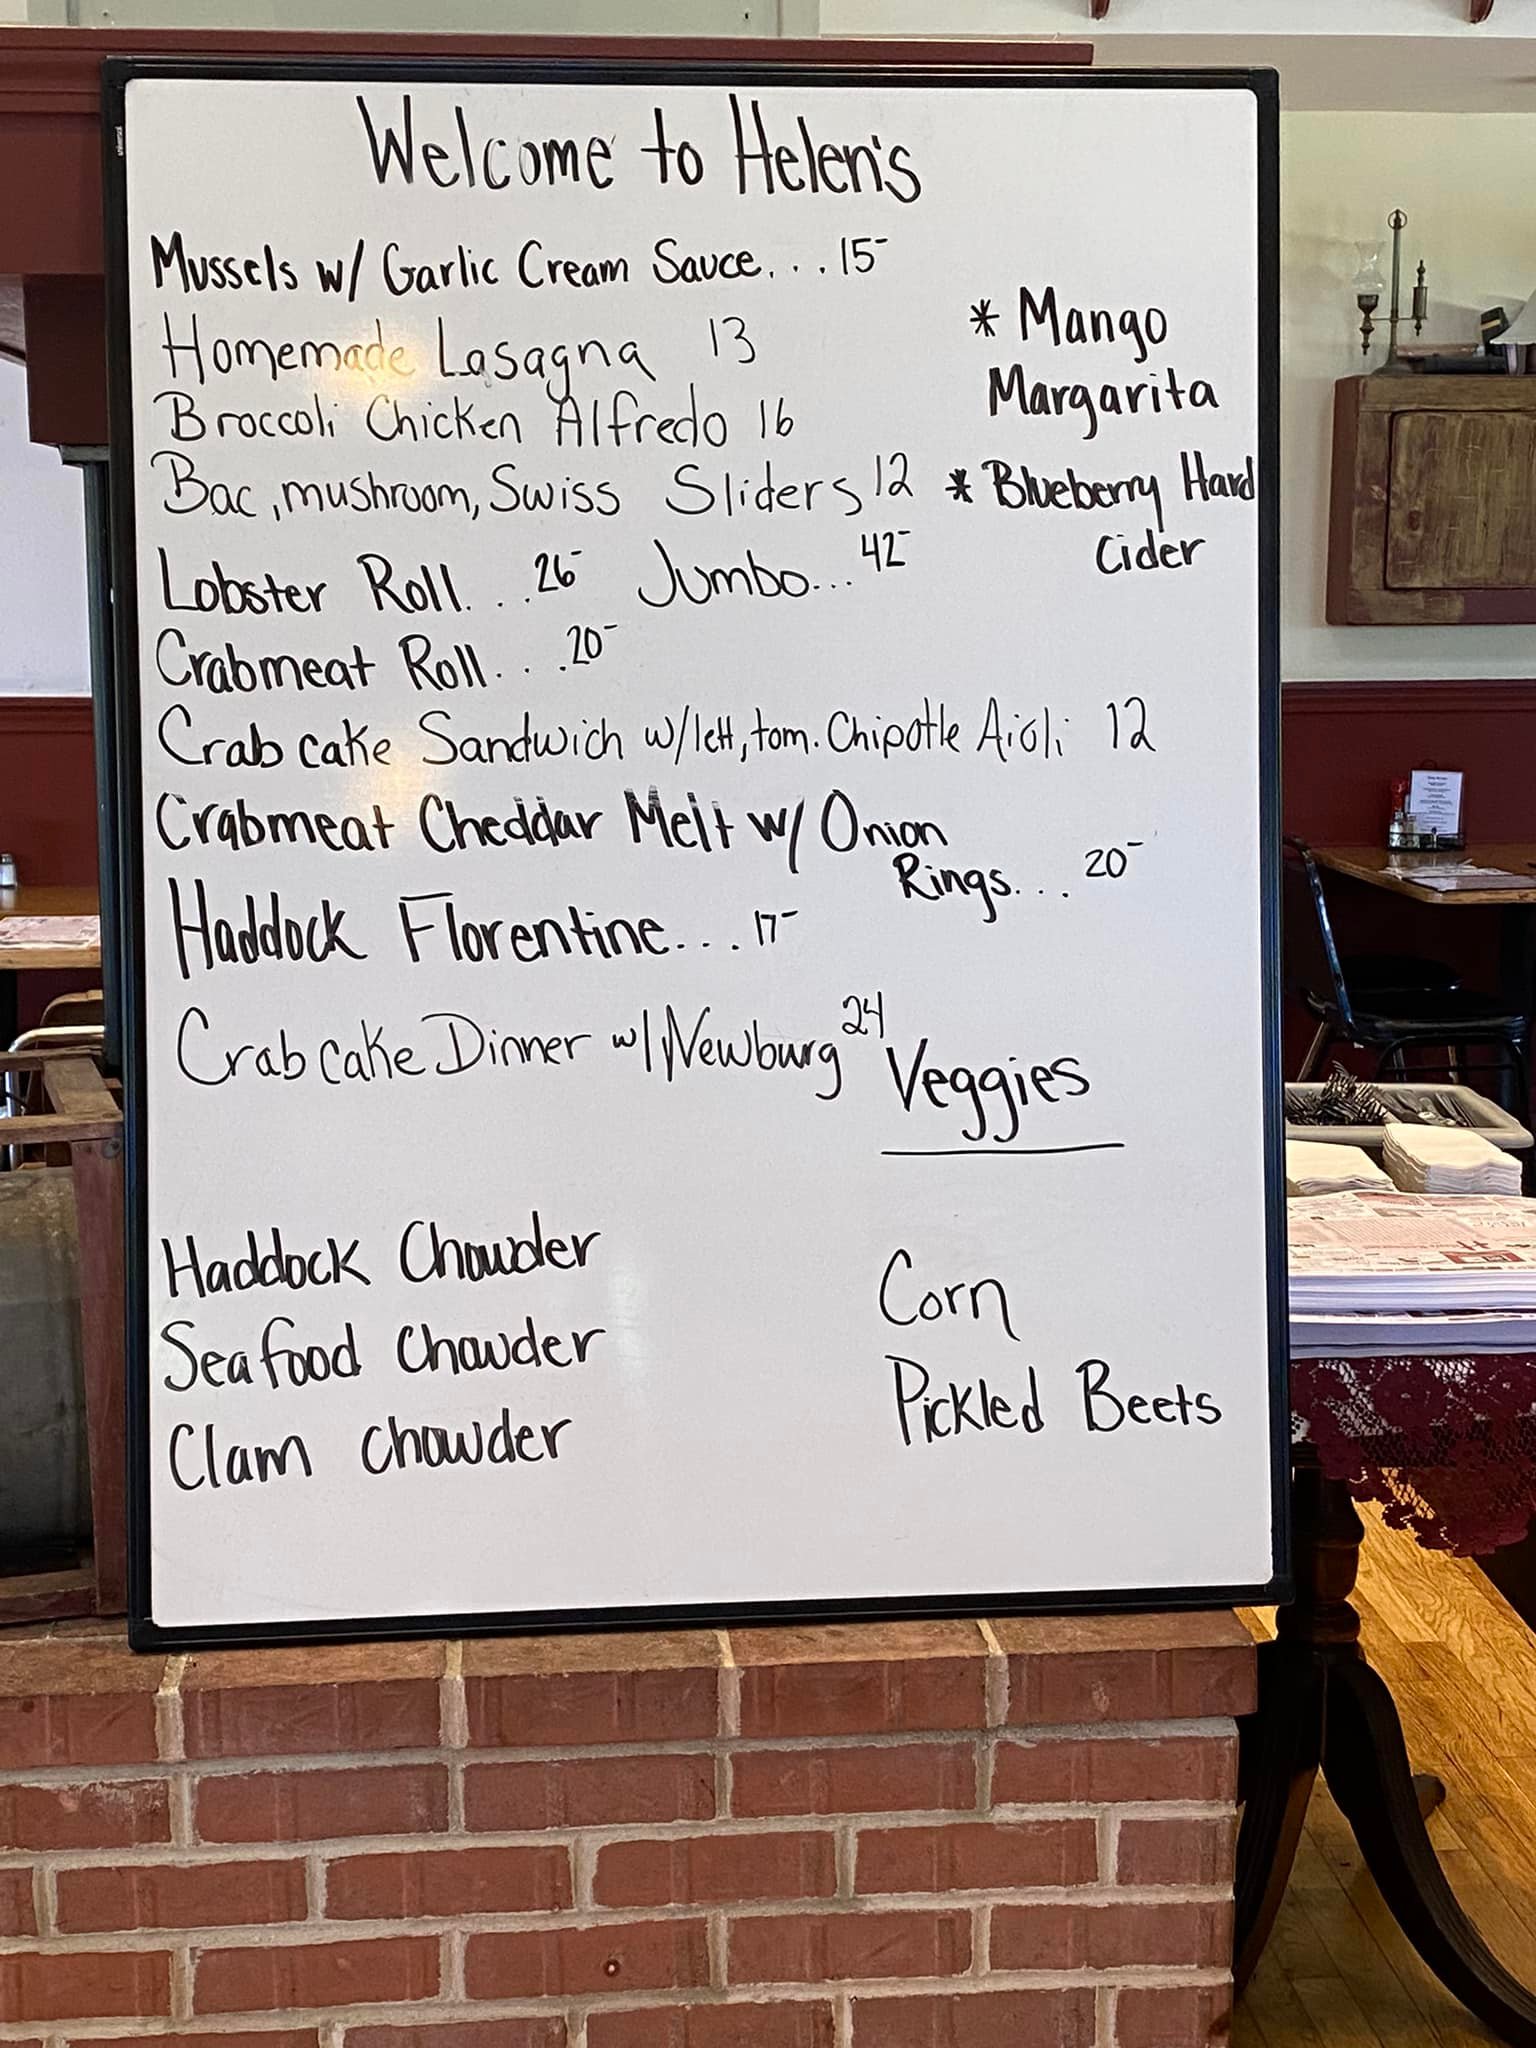 Welcome to Helen's
Mussels w/ Garlic Cream Sauce... 15-
Homemade Lasagna 13
Broccoli Chicken Alfredo 16
Bac, mushroom, Swiss Sliders 12
Lobster Roll... 26- Jumbo... 42-
Crabmeat Roll... 20-
Crab cake Sandwich w/lett, tom. Chipotle Aioli 12
Crabmeat Cheddar Melt w/ Onion
Rings... 20-
Haddock Florentine... 17-
Crab cake Dinner w/ Newburg 24
* Mango
Margarita
* Blueberry Hard
Cider
Haddock Chowder
Seafood Chowder
Clam Chowder
Veggies
Corn
Pickled Beets